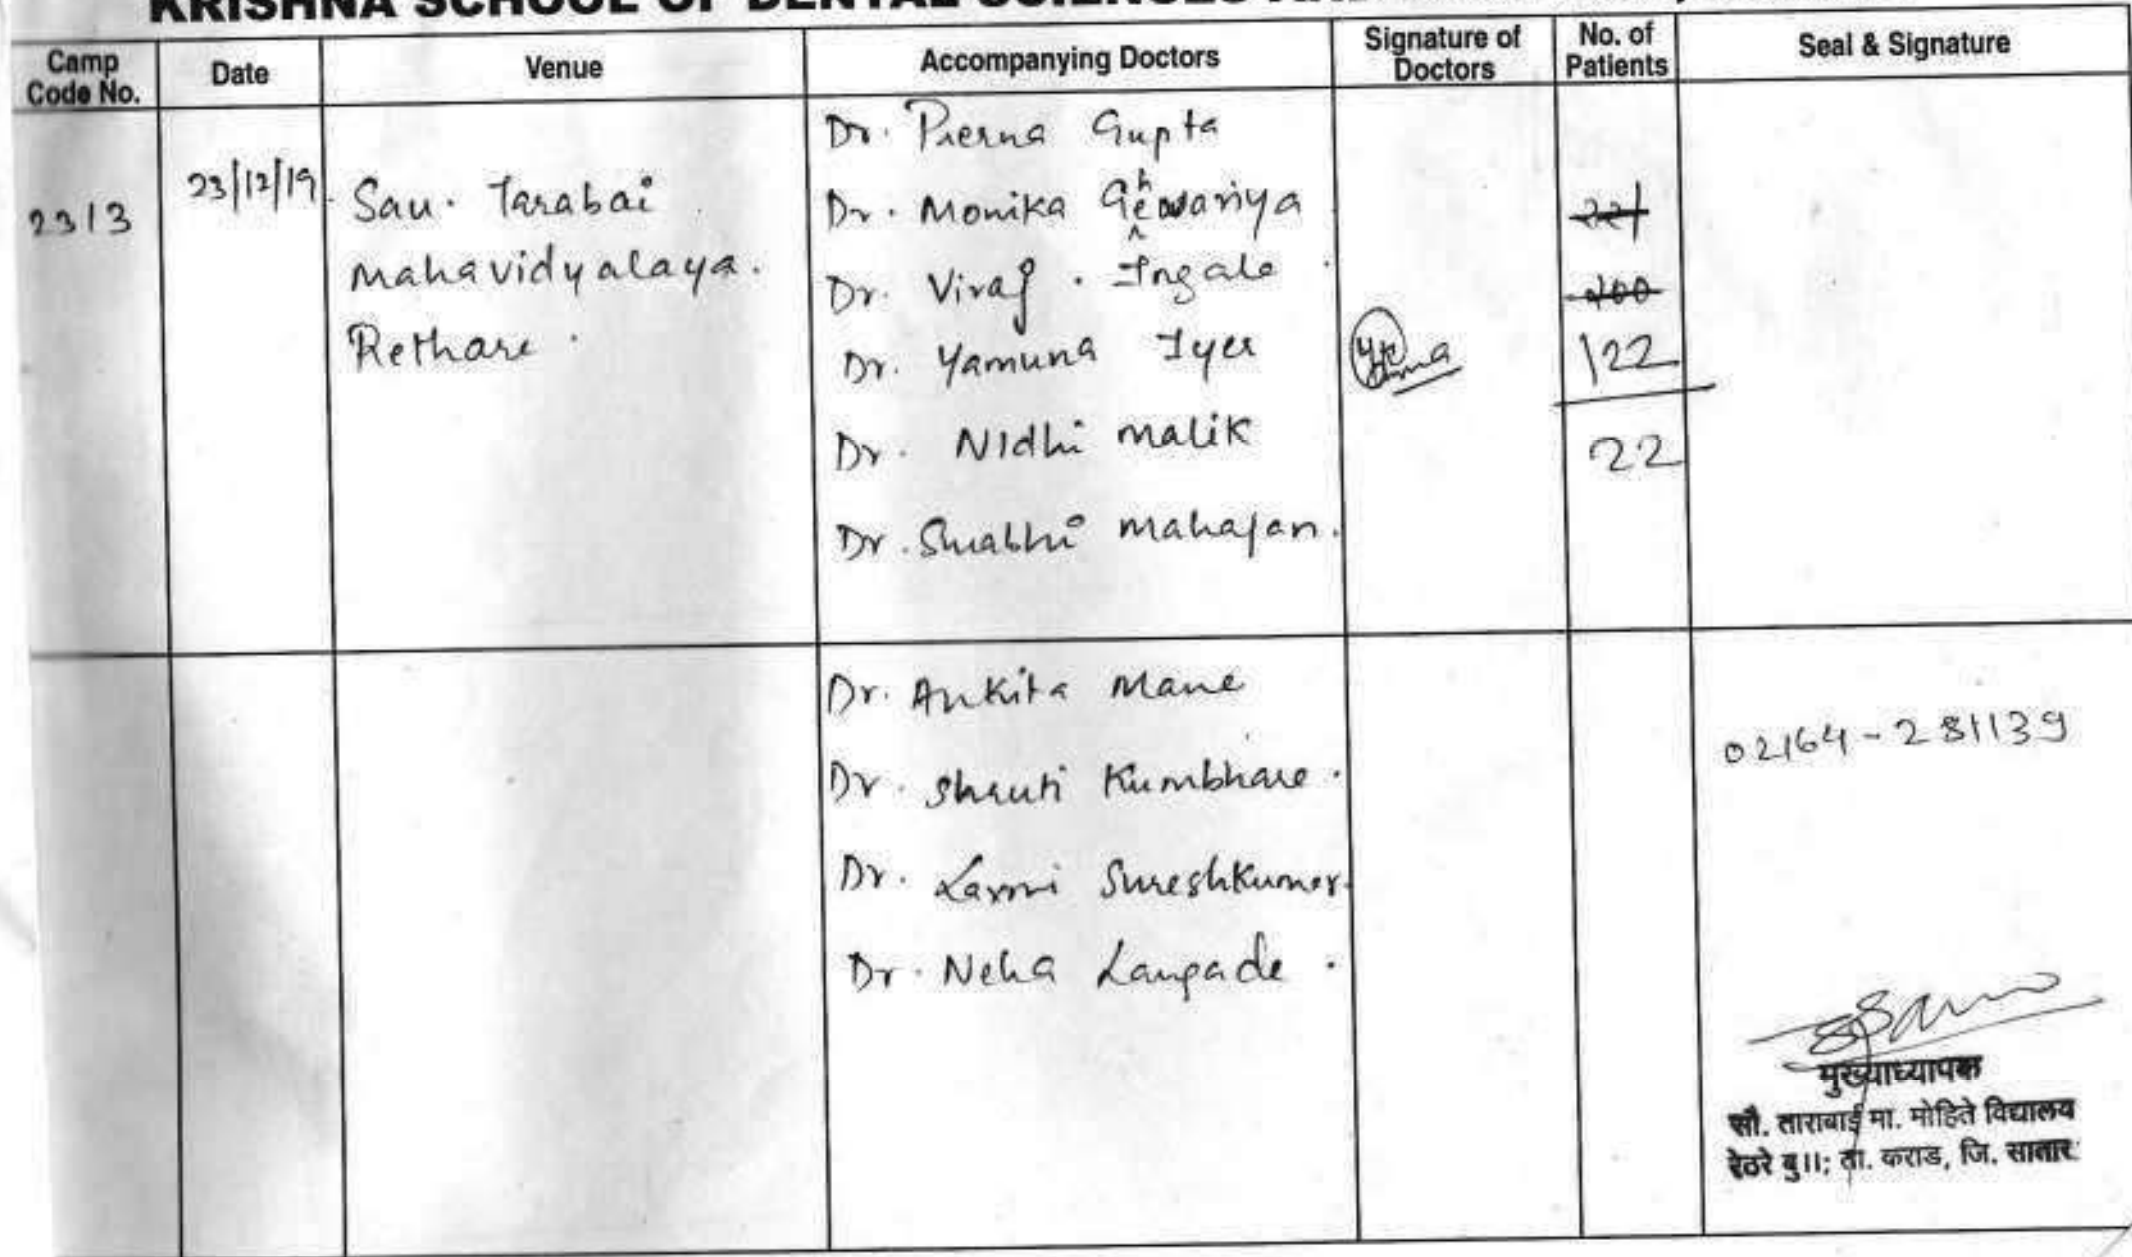 KRISHNA SCHOOL OF DENTAL SCIENCES
Camp Code No.
Date
Venue
Accompanying Doctors
Signature of Doctors
No. of Patients
Seal & Signature
2313
23/12/19
Sau. Tarabai
Mahavidyalaya.
Rethare.
Dr. Prerna Gupta
Dr. Monika
Dr. Viraj. Ingale
Dr. Yamuna Iyer
Dr. Nidhi Malik
Dr. Surabhi Mahajan.
221
200
122
22
Dr. Ankita Mane
Dr. Shruti Kumbhare.
Dr. Laxmi Sureshkumar.
Dr. Neha Langade.
02164-281139
मुख्याध्यापक
सौ. ताराबाई मा. मोहिते विद्यालय
रेठरे बु॥; ता. कराड, जि. सातारा